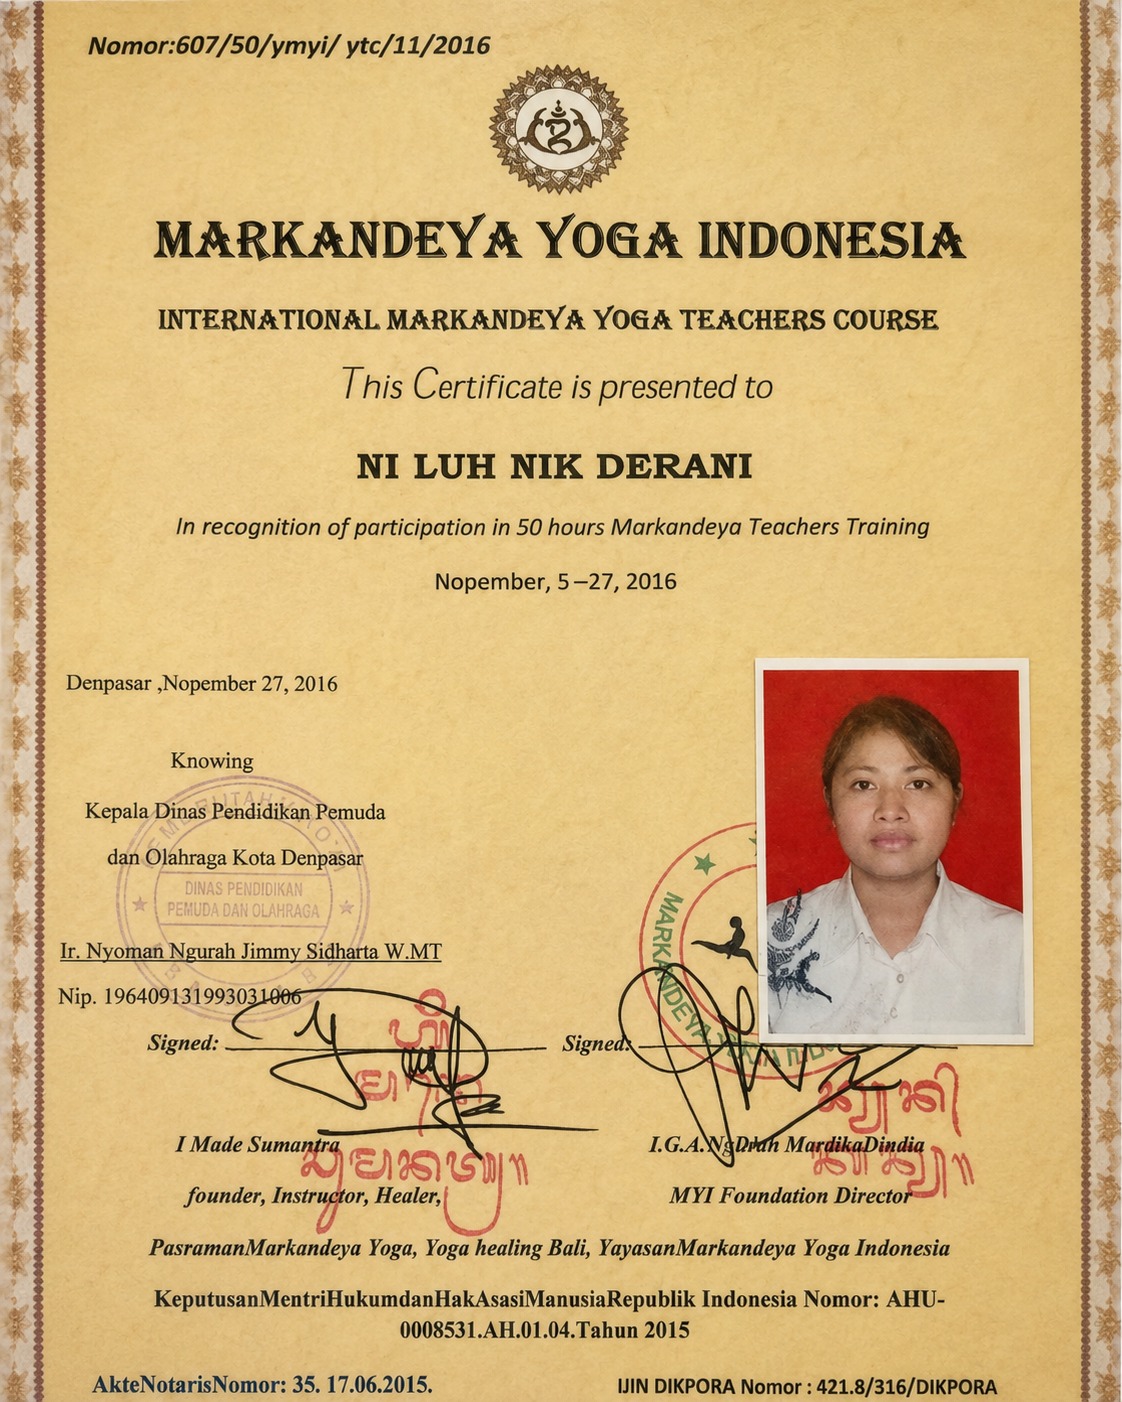 Nomor:607/50/ymyi/ ytc/11/2016
MARKANDEYA YOGA INDONESIA
INTERNATIONAL MARKANDEYA YOGA TEACHERS COURSE
This Certificate is presented to
NI LUH NIK DERANI
In recognition of participation in 50 hours Markandeya Teachers Training
Nopember, 5 –27, 2016
Denpasar ,Nopember 27, 2016
Knowing
Kepala Dinas Pendidikan Pemuda
dan Olahraga Kota Denpasar
DINAS PENDIDIKAN
PEMUDA DAN OLAHRAGA
Ir. Nyoman Ngurah Jimmy Sidharta W.MT
Nip. 196409131993031006
MARKANDEYA
Signed: Signed:
I Made Sumantra I.G.A. MardikaDindia
founder, Instructor, Healer, MYI Foundation Director
PasramanMarkandeya Yoga, Yoga healing Bali, YayasanMarkandeya Yoga Indonesia
KeputusanMentriHukumdanHakAsasiManusiaRepublik Indonesia Nomor: AHU-
0008531.AH.01.04.Tahun 2015
AkteNotarisNomor: 35. 17.06.2015. IJIN DIKPORA Nomor : 421.8/316/DIKPORA